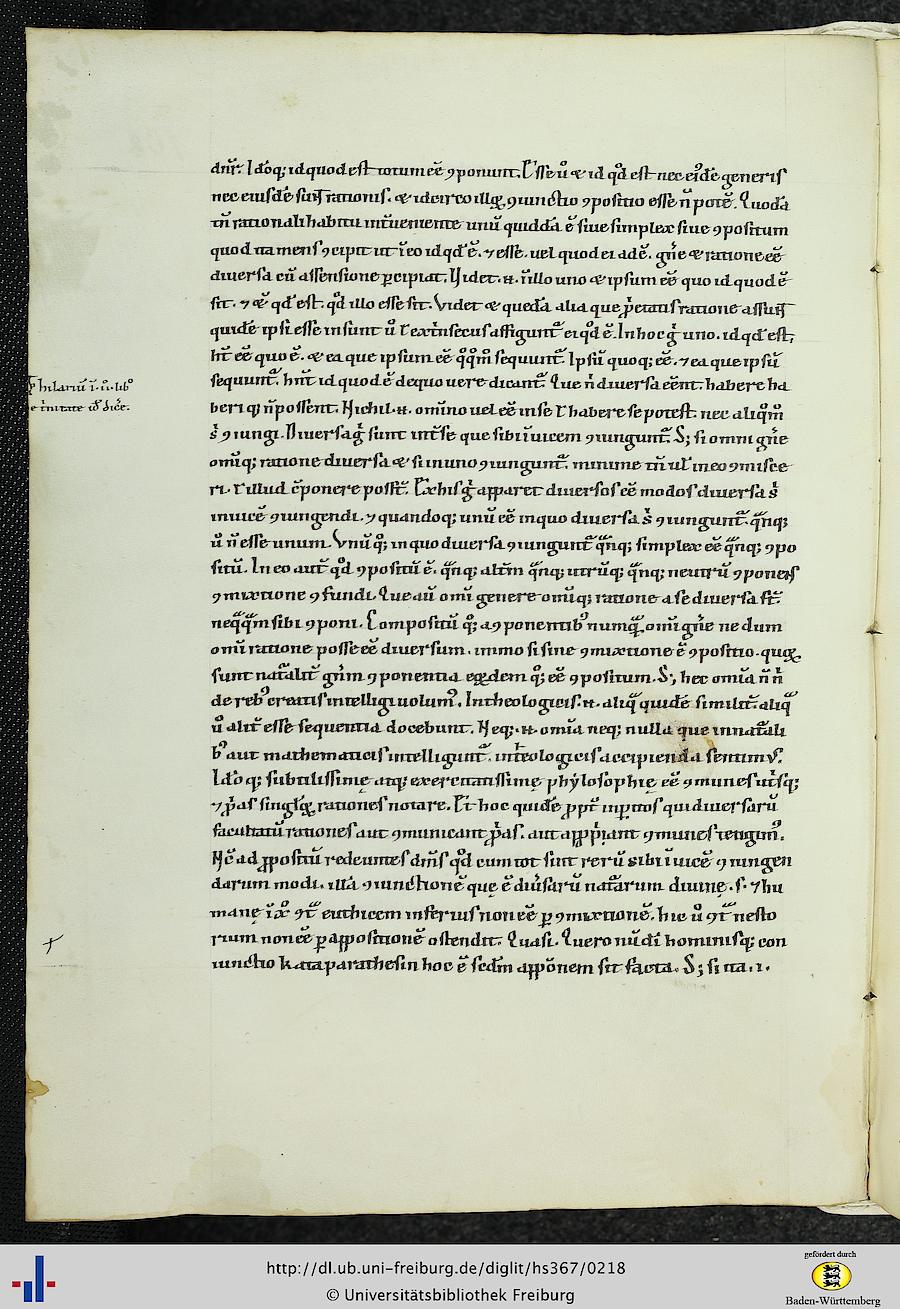 dn̄r. Idõq; id quod est totum eē ꝯponunt. Esse ů & id qd̛ est nec eid̛e generis
nec eiusdē sunt rationis. & idcirco illoꝝ ꝯiunctio ꝯpositio esse n̄ potē. Quodā
tn̄ rationali habitu int̛ueniente unū quiddā ē siue simplex siue ꝯpositum
quod ita mens ꝯcipit ut ī eo id qd̛ ē. ⁊ esse. uel quod ei adē. gn̄e & ratione eē
diuersa cū assensione ꝑcipiat. Videt .n. ī illo uno & ipsum eē quo id quod ē
sit. ⁊ & qd̛ est. qd̛ illo esse sit. Videt & quedā alia que p̄ratione
quidē ipsi esse insunt ů ł extrinsecus affigunt̃ ei qd̛ ē. In hoc g̊ uno. id qd̛ est,
ht̄ eē quo ē. & ea que ipsum eē sequunt̃. Ipsū quoq; eē. ⁊ ea que ipsū
sequunt̃. hn̄t id quod ē de quo uere dicant̃. Que n̄ diuersa eēnt. habere ha
beri q; n̄ possent. Nichil .n. omīno uel eē in se ł habere se potest. nec
ꝯiungi. Diuersa g̊ sunt int̄ se que sibi īuicem ꝯiungunt̃. S; si omni gn̄e
omīq; ratione diuersa & si in uno ꝯiungunt̃. minime tn̄ ul̄ in eo ꝯmisce
ri. ł illud ꝯponere posst̄. Ex his g̊ apparet diuersos eē modos diuersa s̄
inuicē ꝯiungendi. ⁊ quandoq; unū eē in quo diuersa s̄ ꝯiungunt̃. qn̄q;
ů n̄ esse unum. Vnū q̊; in quo diuersa ꝯiungunt̃ qn̄q; simplex eē qn̄q; ꝯpo
sitū. In eo aut̄ qd̛ ꝯpositū ē. qn̄q; alt̄m qn̄q; utrūq; qn̄q; neutrū ꝯponens
ꝯmixtione ꝯfundi. Que aū omī genere omīq; ratione a se diuersa st̄.
neq̄q̄m sibi ꝯponi. Compositū q̊; a ꝯponentibꝰ numq̄ omī gn̄e ne dum
omī ratione posse eē diuersum. immo si sine ꝯmixtione ē ꝯpositio. quoꝝ
sunt nat̃alit̄ ꝯponentia eoꝝdem q̊; eē ꝯpositum. S; hec omīa n̄ n̄
de rebꝰ creatis intelligi uolumꝰ. In theologicis .n. aliq̄ quidē similit̄. aliq̄
ů alit̄ esse sequentia docebunt. Neq; .n. omīa neq; nulla que in nat̃ali
bꝰ aut mathematicis intelligunt̃. in teologicis accipienda sentimꝰ.
Idõ q; subtilissimę atq; exercitatissimę phylosophię eē ꝯmunes utrisq;
⁊ p̄as singloꝝ rationes notare. Et hoc quidē ꝓpt̄ inp̄itos qui diuersarū
facultatū rationes aut ꝯmunicant p̄as. aut app̄iant ꝯmunes
Nc̄ ad ꝓpositū redeuntes dm̄s qd̛ cum tot sint rerū sibi īuicē ꝯiungen
darum modi. illā ꝯiunctionē que ē diuersarū nat̃arum diuinę .s. ⁊ hu
manę ī x̄o ꝯt̄ euthicem inferius non eē ꝑ ꝯmixtionē. hic ů ꝯt̄ nesto
rium non eē ꝑ appositionē ostendit. Quasi. Quero nū dī hominisq; con
iunctio kata parathesin hoc ē scdm̄ appōnem sit facta. S; si ita .i.
hilariū ī .ii. libꝰ
e trinitate id̛ dice.
http://dl.ub.uni-freiburg.de/diglit/hs367/0218
© Universitätsbibliothek Freiburg
gefördert durch
Baden-Württemberg